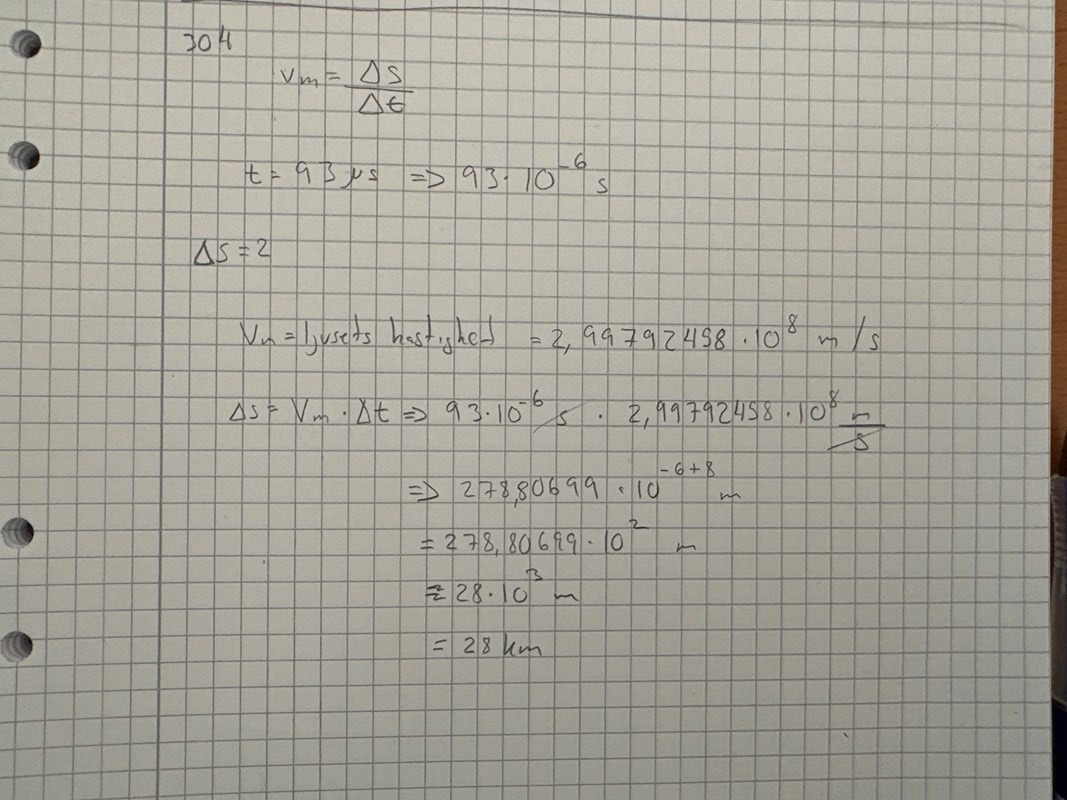 304
Vm = Δs/Δt
t = 93 μs => 93 · 10^-6 s
Δs = 2
Vm = ljusets hastighet = 2,99792458 · 10^8 m/s
Δs = Vm · Δt => 93 · 10^-6 s · 2,99792458 · 10^8 m/s
=> 278,80699 · 10^-6+8 m
= 278,80699 · 10^2 m
≈ 28 · 10^3 m
= 28 km